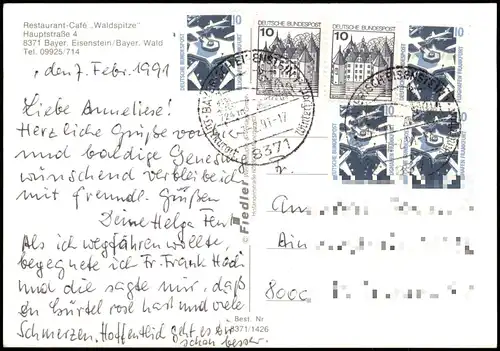 Restaurant-Café „Waldspitze"
Hauptstraße 4
8371 Bayer. Eisenstein/Bayer. Wald
Tel. 09925/714
, den 7. Febr. 1991
Liebe Anneliese!
Herzliche Grüße von hier
und baldige Genesung
wünschend verbleibe ich
mit freundl. Grüßen
Deine Helga
Als ich wegfahren wollte,
begegnete ich Fr. Frank
und die sagte mir, daß
du Gürtel rose hast und viele
Schmerzen. Hoffentlich geht es dir
schon besser.
10
DEUTSCHE BUNDESPOST
10
DEUTSCHE BUNDESPOST
10
DEUTSCHE BUNDESPOST
10
10
10
FLUGHAFEN FRANKFURT
8371
Fiedler
Best. Nr
8371/1426
An
8000